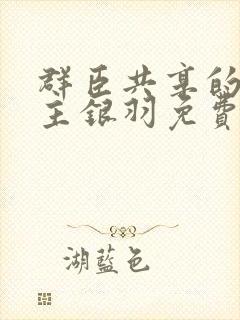 群臣共享的
主银羽免費
湖藍色